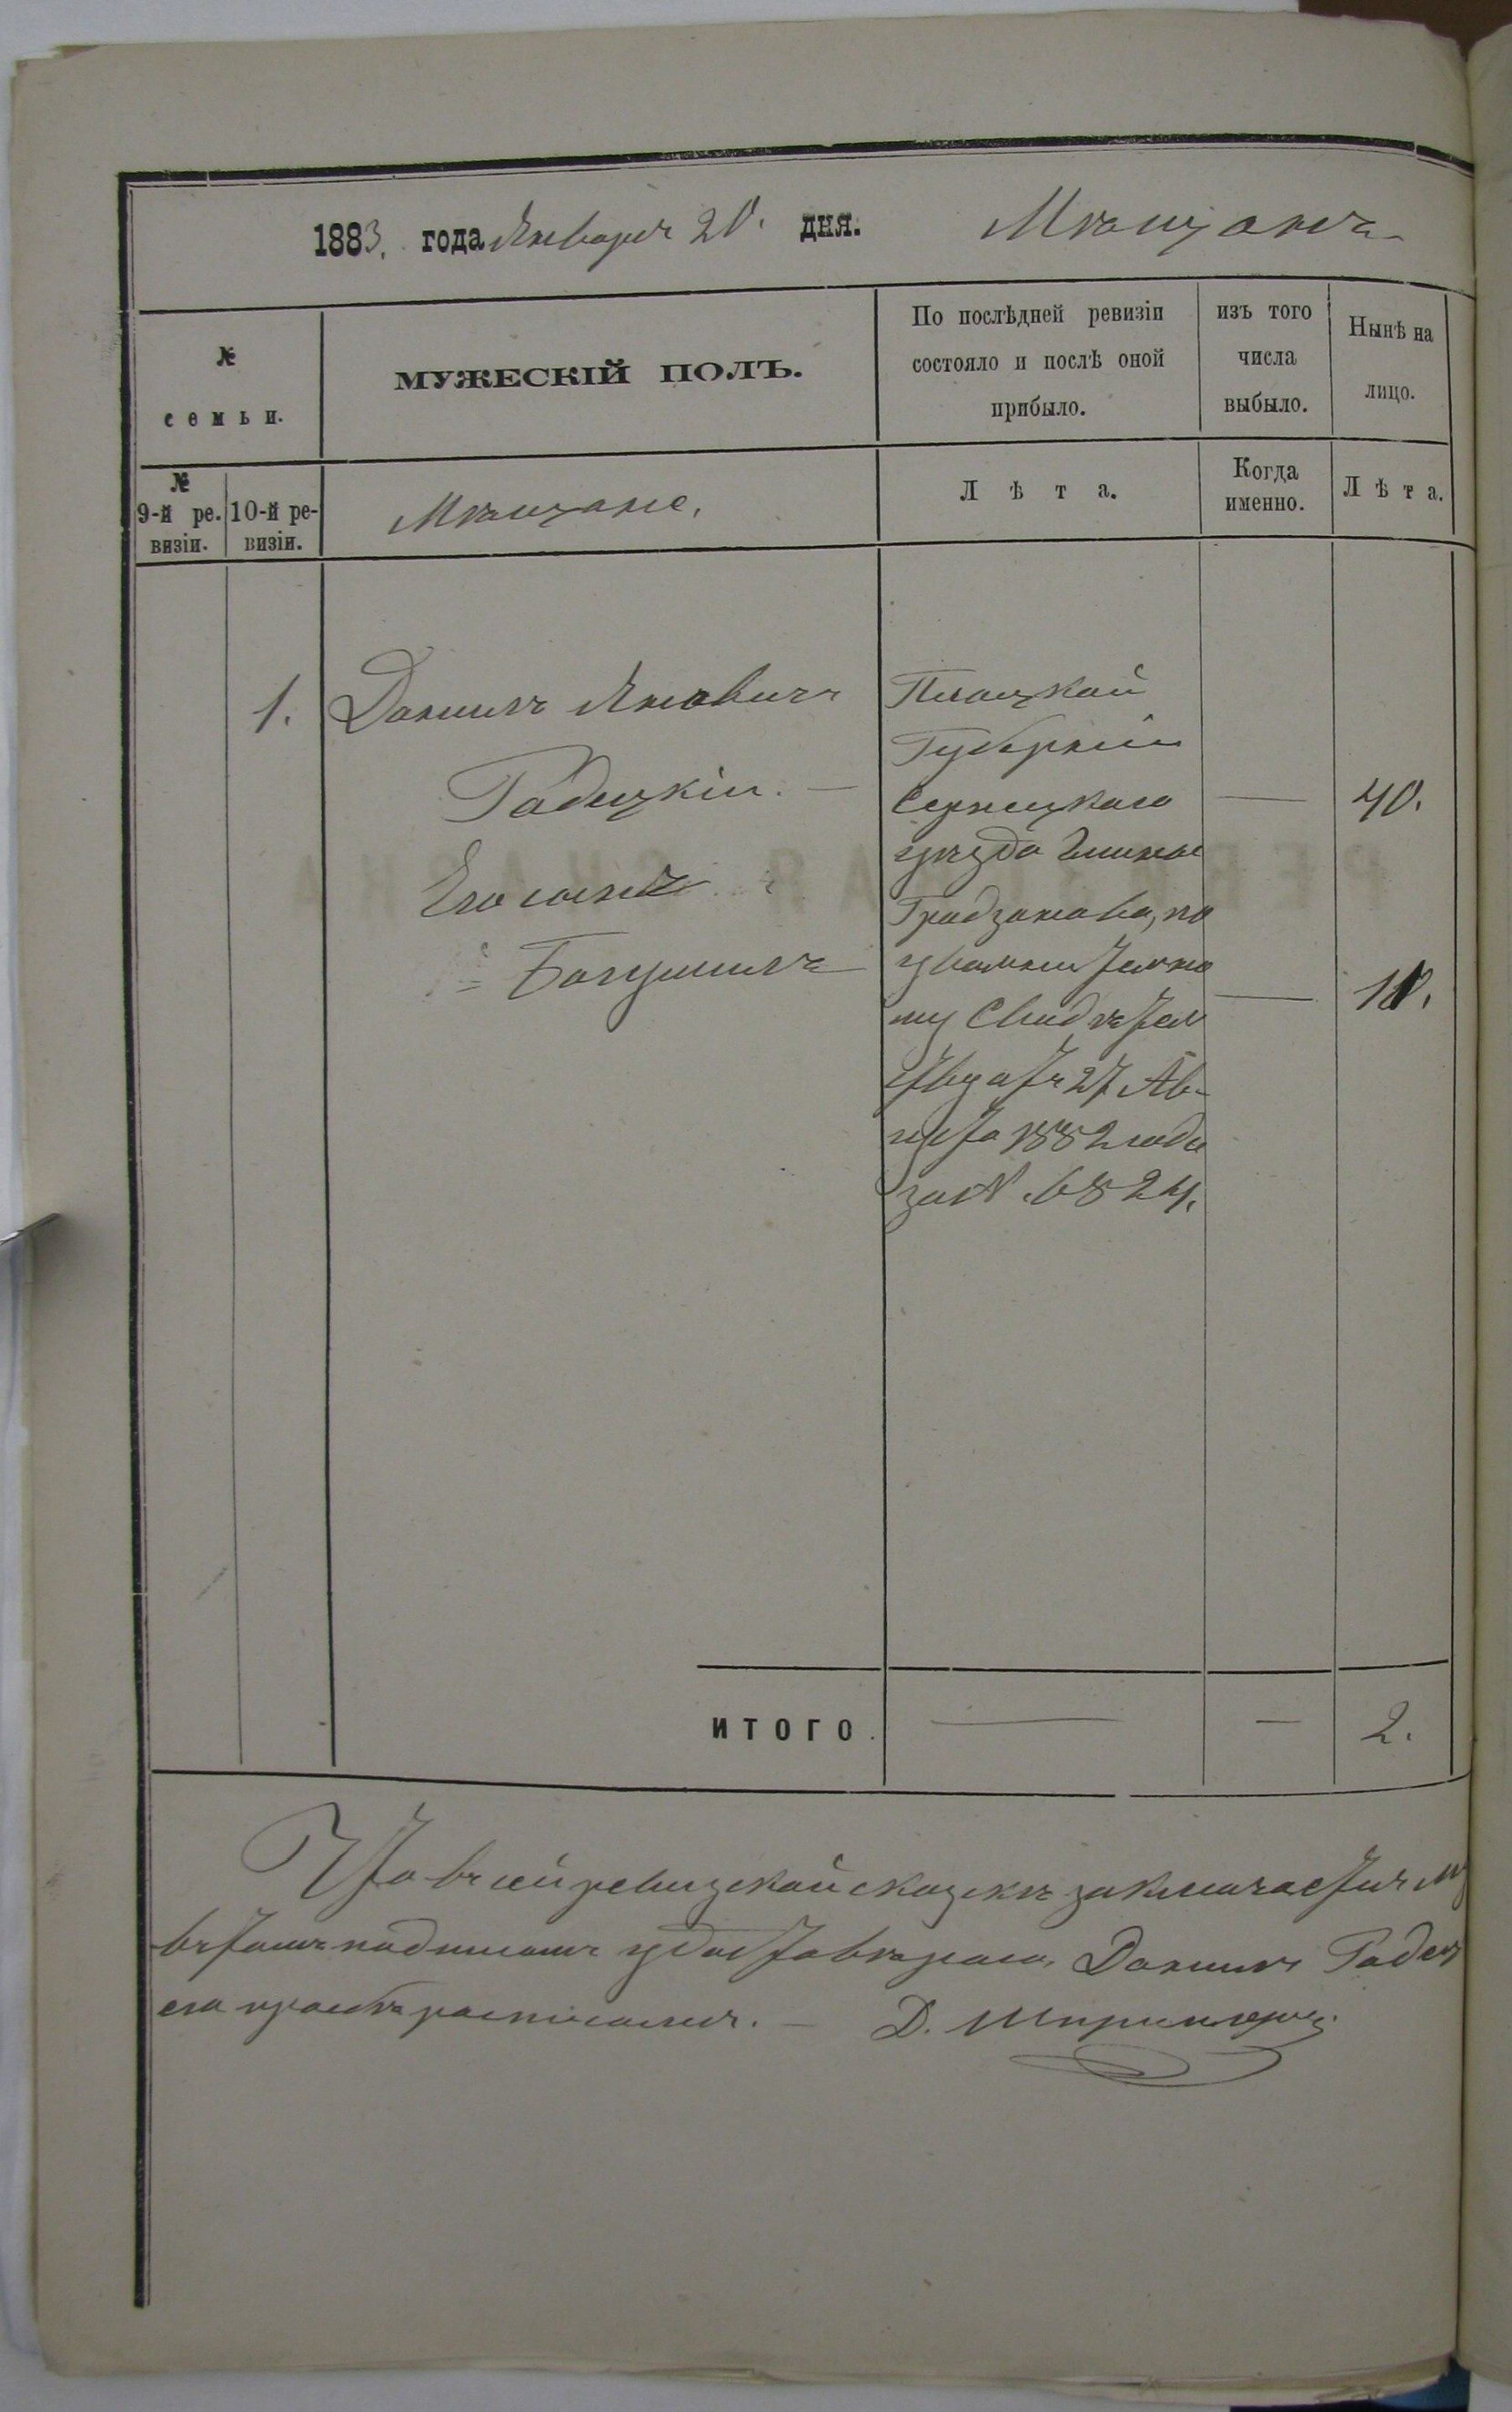 1883. года Января 20. дня. Мѣщанъ
№ семьи.
МУЖЕСКІЙ ПОЛЪ.
По послѣдней ревизіи состояло и послѣ оной прибыло.
изъ того числа выбыло.
Нынѣ на лицо.
№ 9-й ре-визіи.
10-й ре-визіи.
Мѣщане.
Лѣта.
Когда именно.
Лѣта.
1. Данилъ Яновичъ
Радецкій. — — 40.
Его сынъ
Богумилъ — 10.
Плоцкой
Губерніи
Серпецкаго
уѣзда Гмины
Градзаново, по
увольнительно
му Свидѣтель
ству отъ 27 Ав-
густа 1882 года
за № 6824.
ИТОГО. — — 2.
Что въ сей ревизской сказкѣ заключается
въ томъ подписомъ удостовѣряю, Данилъ
его просьбѣ росписался. — Д.